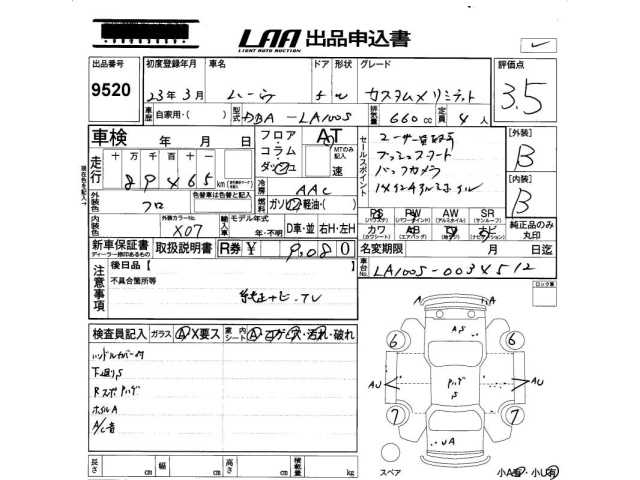 LAA 出品申込書
LIGHT AUTO AUCTION
出品番号
9520
初度登録年月
23年3月
車名
ムーヴ
ドア
5
形状
W
グレード
カスタムXリミテッド
評価点
3.5
車歴
自家用・( )
型式
DBA-LA100S
排気量
660cc
定員
4人
車検
年 月 日
フロア・コラム・ダッシュ
AT
MTのみ記入
速
セールスポイント
ユーザー買取車
プッシュスタート
バックカメラ
[外装]
B
[内装]
B
走行
十 万 千 百 十
89465
km
現在色を記入
冷房
AAC
外装色
クロ
色替車は色替と記入
燃料
ガソリン 軽油・( )
内装色
外装カラーNo.
X07
輸入車
モデル年式
年・不明
D車・並
右H・左H
PS
(パワステ)
PW
(パワーウインド)
AW
(アルミホイル)
SR
(サンルーフ)
カワ
(カワシート)
AB
(エアバッグ)
TV
ナビ
(ナビゲーション)
純正品のみ丸印
新車保証書
ディーラー印のあるもの
取扱説明書
R券
¥
9,080
名変期限
月 日迄
車台No.
LA100S-0034512
注意事項
後日品【
】
不具合箇所等
純正ナビ・TV
ロック車
検査員記入
ガラス
A X要ス
室内シート
A コゲ・穴・汚れ・破れ
ハンドルカバー付
下廻りS
ホイルA
A/C音
A
A
AS
6
6
AU
AU
S
7
7
UA
スペア
小A有・小U有
長さ
cm
幅
cm
高さ
cm
積載量
kg